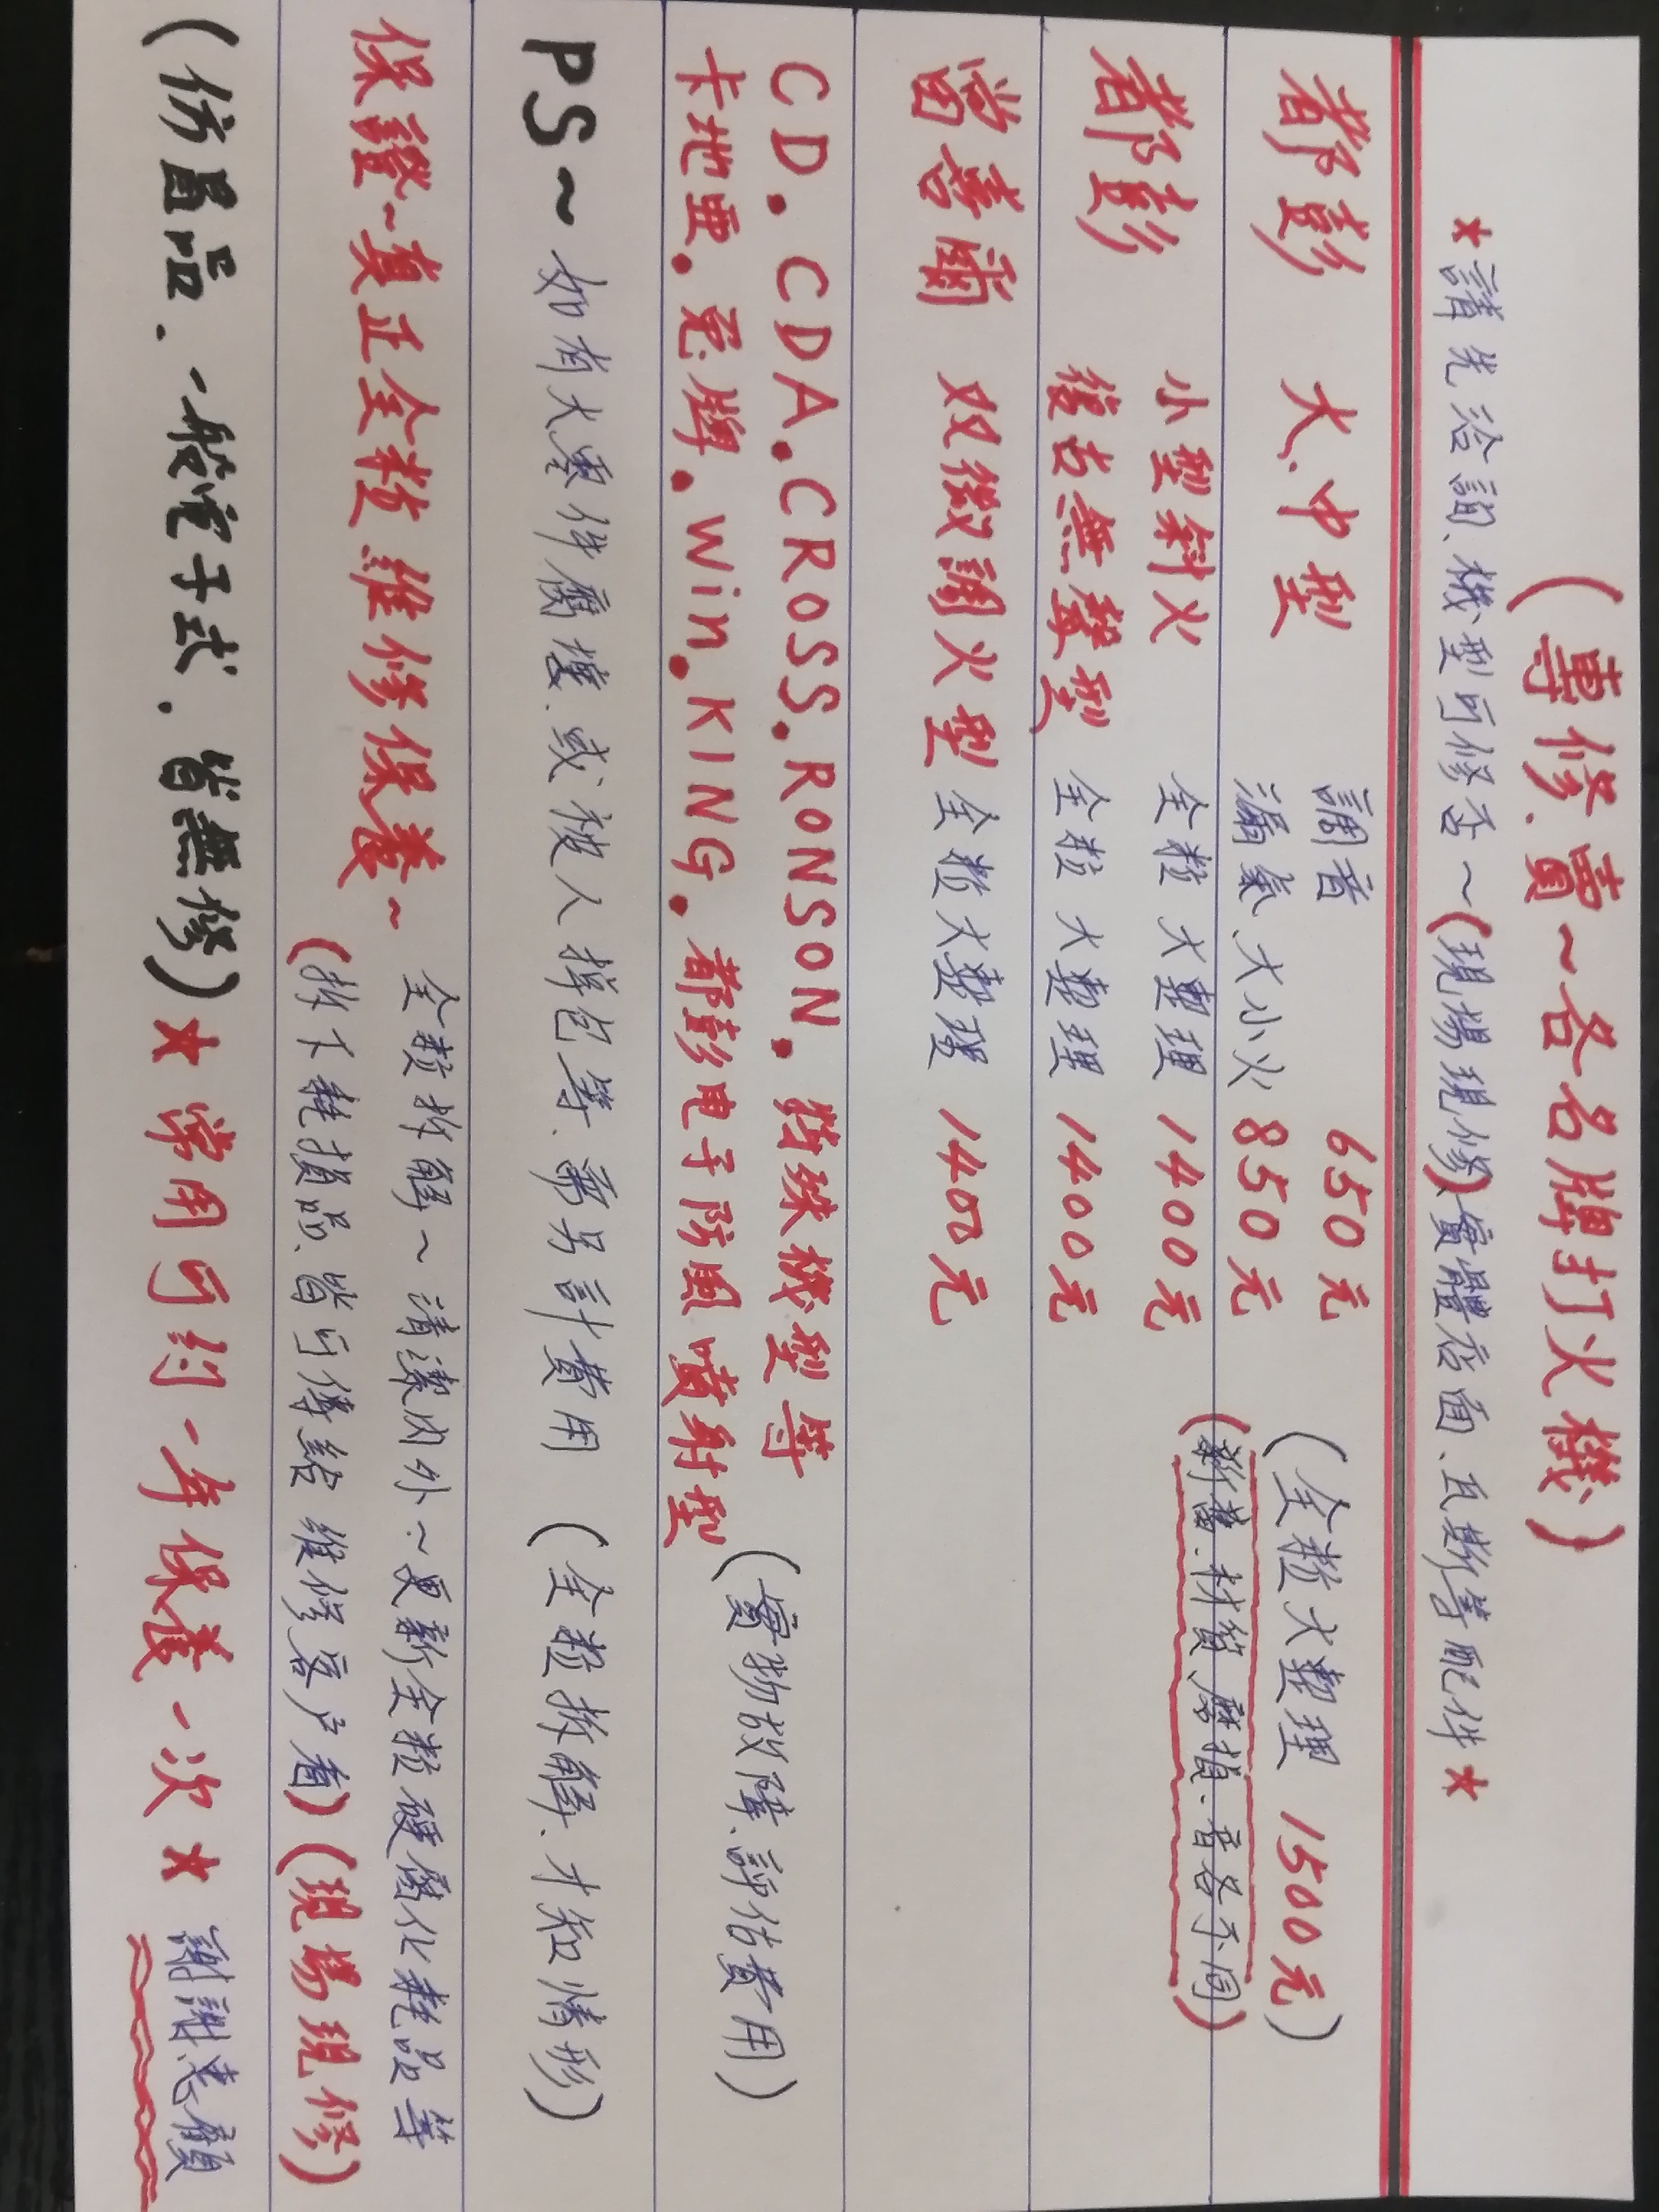 (專修、賣~各名牌打火機)
★請先洽詢、機型可修否~(現場現修)實體店面、瓦斯等配件★
都彭 大、中型 調音 650元 (全粒大整理 1500元)
漏氣、大小火 850元
(新舊、材質、磨損、音各不同)
都彭 小型斜火 全粒大整理 1400元
復古無聲型 全粒大整理 1400元
當喜爾 双微調火型 全粒大整理 1400元
CD.CDA.CROSS.RONSON.特殊機型等
卡地亜.兔牌.win.KING.都彭电子防風噴射型
(實物故障、評估費用)
PS~如有大零件腐壞、或被人掉包等、需另計費用 (全粒拆解、才知情形)
保證~真正全粒維修保養~
全粒拆解~清潔內外~更新全粒硬僵化耗品等
(拆下耗損品、皆可傳給維修客户看)(現場現修)
(仿冒品.一般電子式.皆無修)★常用可約一年保養一次★ 謝謝惠顧